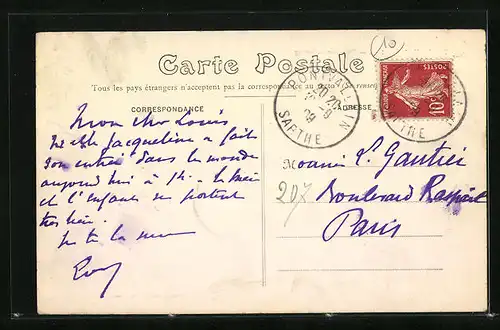 10
Carte Postale
Tous les pays étrangers n'acceptent pas la correspondance au
CORRESPONDANCE
ADRESSE
PONTVALLAIN
SARTHE
POSTES
10c
Mon cher Louis
Jacqueline a fait
son entrée dans le monde
aujourd'hui à 1h. La mère
et l'enfant se portent
très bien.
Je te la
L. Gautier
207 Boulevard Raspail
Paris